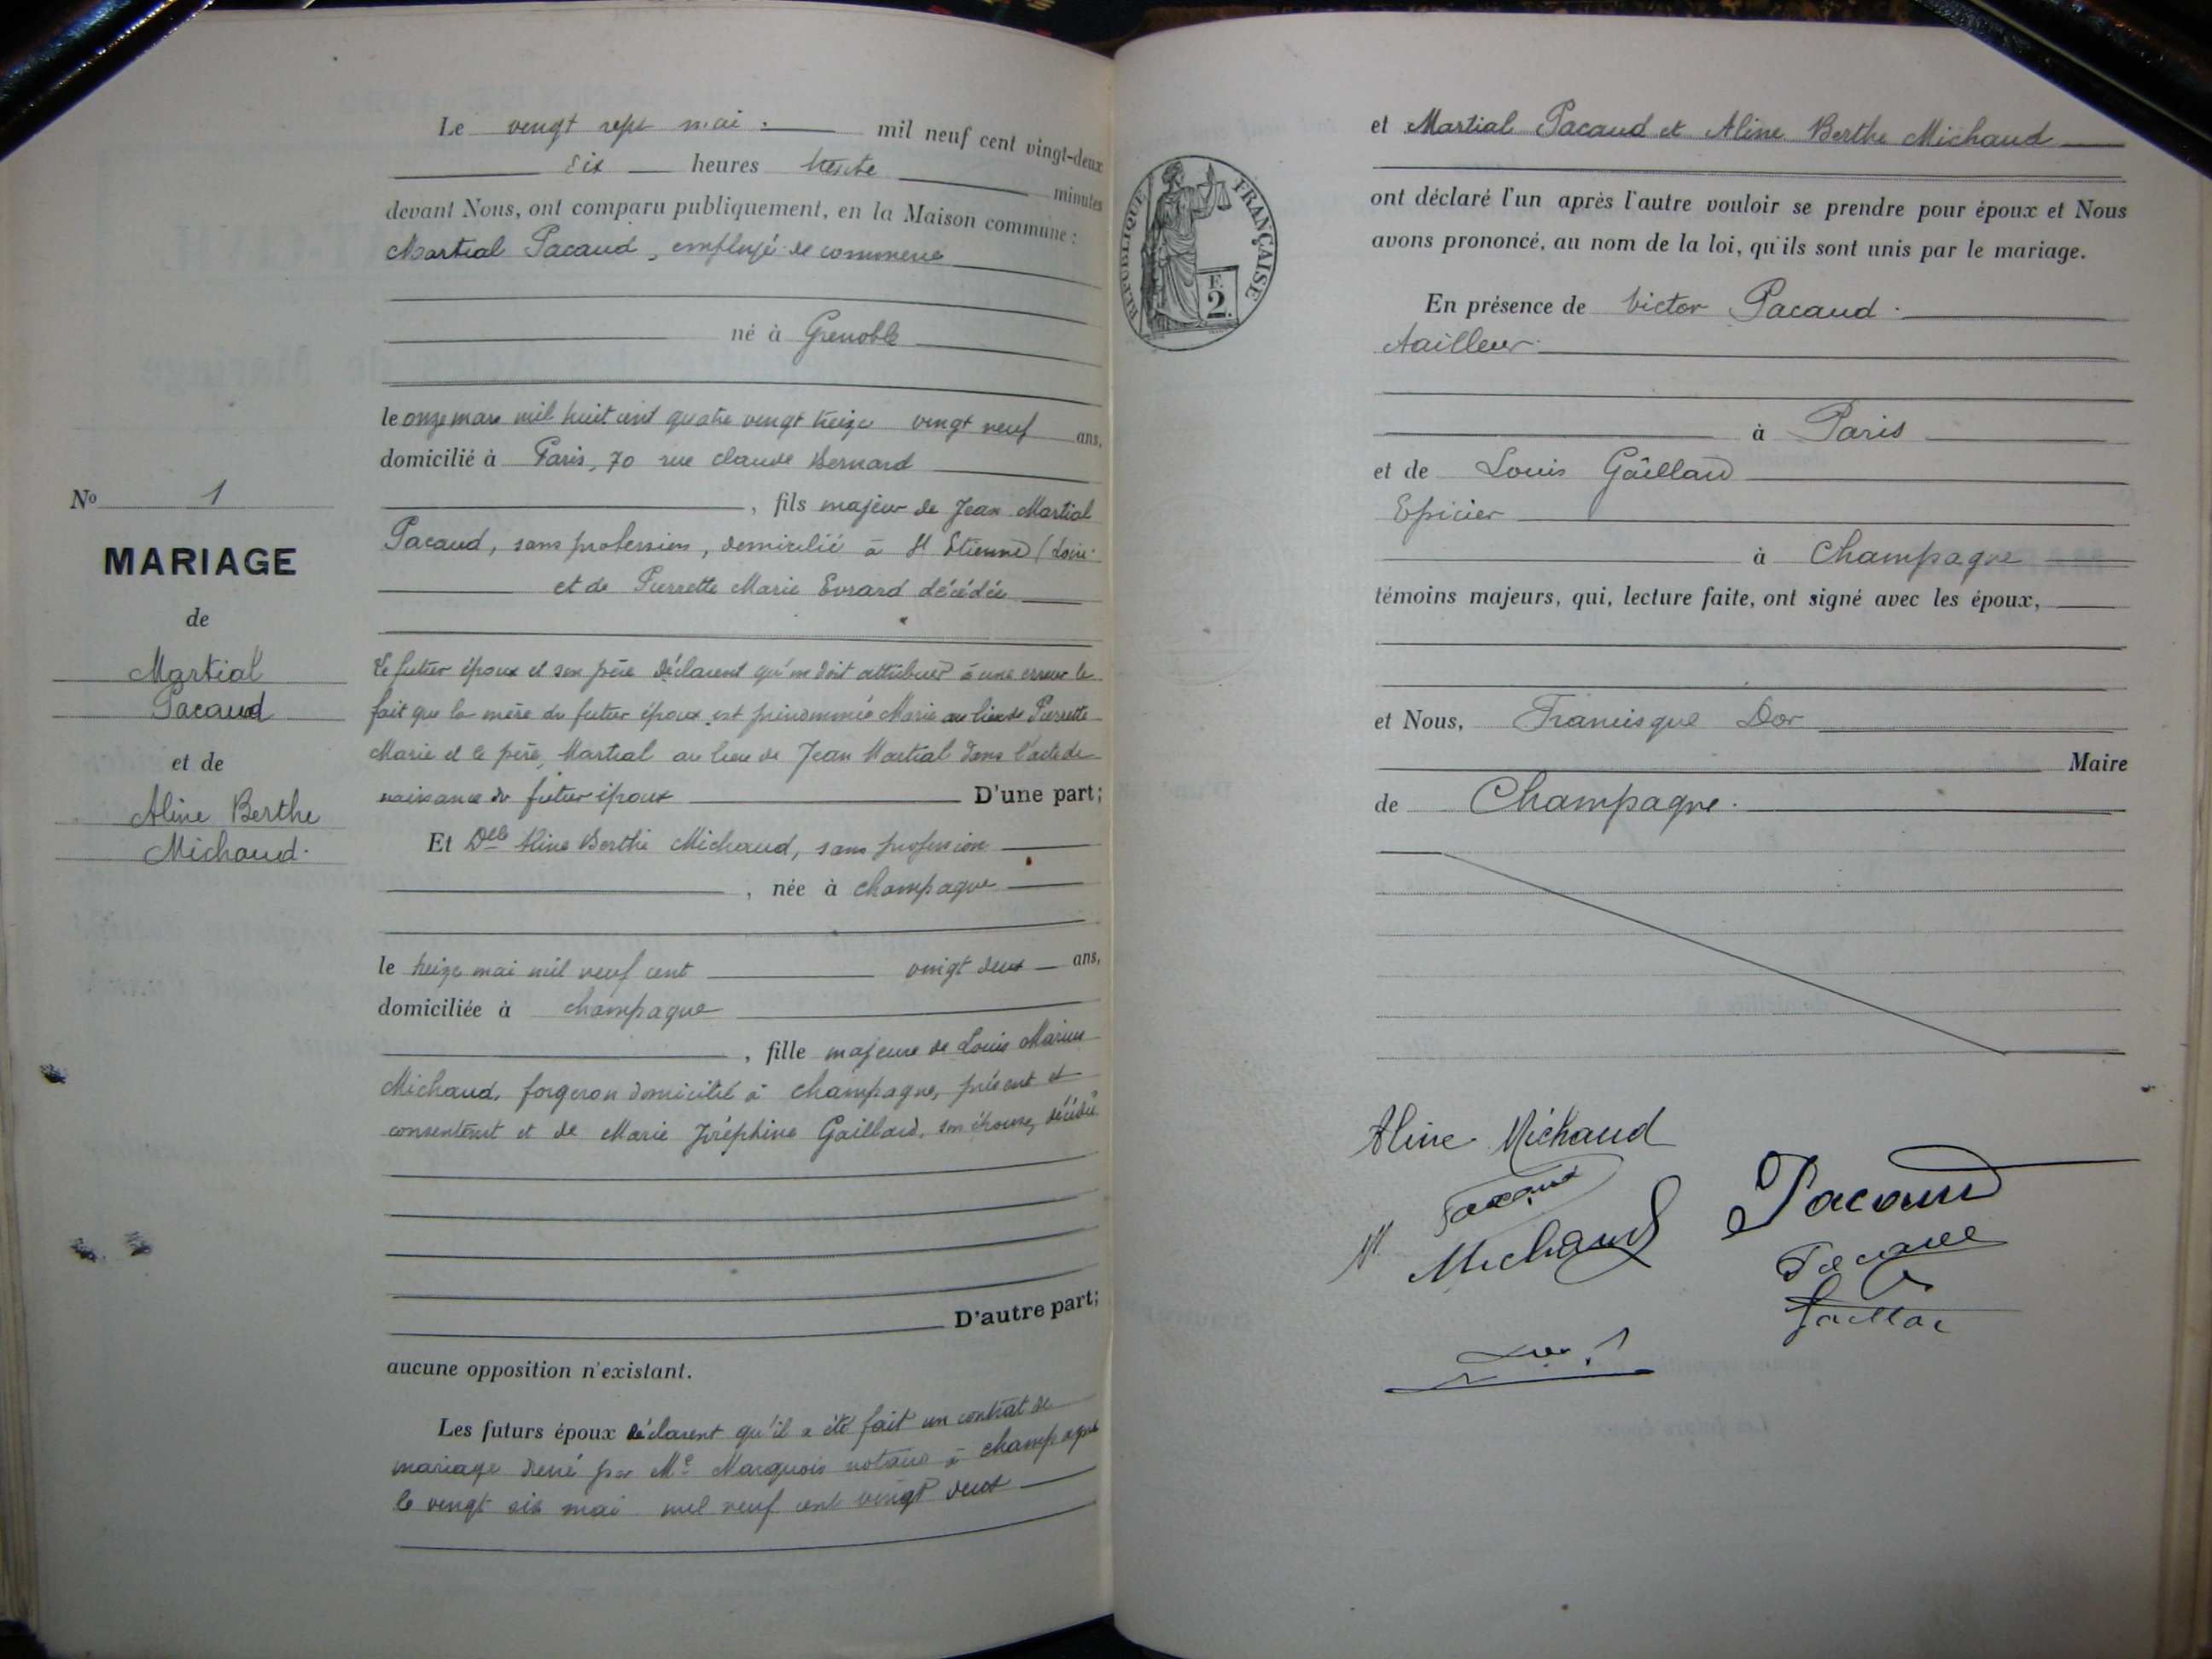 Le vingt sept mai mil neuf cent vingt-deux
dix heures trente minutes
devant Nous, ont comparu publiquement, en la Maison commune :
Martial Pacaud, employé de commerce
né à Grenoble
le onze mars mil huit cent quatre vingt treize vingt neuf ans,
domicilié à Paris, 70 rue Claude Bernard
, fils majeur de Jean Martial
Pacaud, sans profession, domicilié à St Etienne (Loire
et de Pierrette Marie Evrard décédée
Le futur époux et son père déclarent qu'on doit attribuer à une erreur le
fait que la mère du futur époux est prénommée Marie au lieu de Pierrette
Marie et le père, Martial au lieu de Jean Martial dans l'acte de
naissance du futur époux D'une part;
Et Delle Aline Berthe Michaud, sans profession
, née à Champagne
le treize mai mil neuf cent vingt deux ans,
domiciliée à Champagne
, fille majeure de Louis Marius
Michaud, forgeron domicilié à Champagne, présent et
consentant et de Marie Joséphine Gaillard, son épouse, décédée
D'autre part;
aucune opposition n'existant.
Les futurs époux déclarent qu'il a été fait un contrat de
mariage dressé par Me Marquois notaire à Champagne
le vingt six mai mil neuf cent vingt deux
No 1
MARIAGE
de
Martial
Pacaud
et de
Aline Berthe
Michaud.
RÉPUBLIQUE FRANÇAISE
F.
2.
et Martial Pacaud et Aline Berthe Michaud
ont déclaré l'un après l'autre vouloir se prendre pour époux et Nous
avons prononcé, au nom de la loi, qu'ils sont unis par le mariage.
En présence de Victor Pacaud.
tailleur
à Paris
et de Louis Gaillard
Epicier
à Champagne
témoins majeurs, qui, lecture faite, ont signé avec les époux,
et Nous, Francisque Dor
Maire
de Champagne.
Aline Michaud
Pacaud
Pacaud
M Michaud
Pacaud
Gaillar
Dor